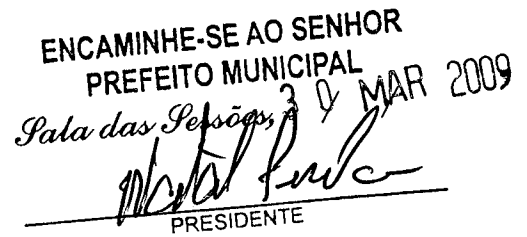 ENCAMINHE-SE AO SENHOR
PREFEITO MUNICIPAL
Sala das Sessões, 30 MAR 2009
PRESIDENTE